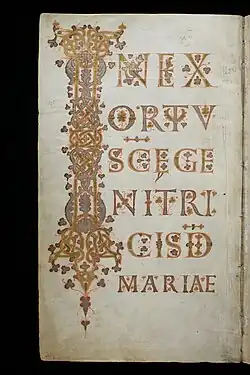 INEX
ORTV
SCĘGE
NITRI
CIS D̄
MARIAE